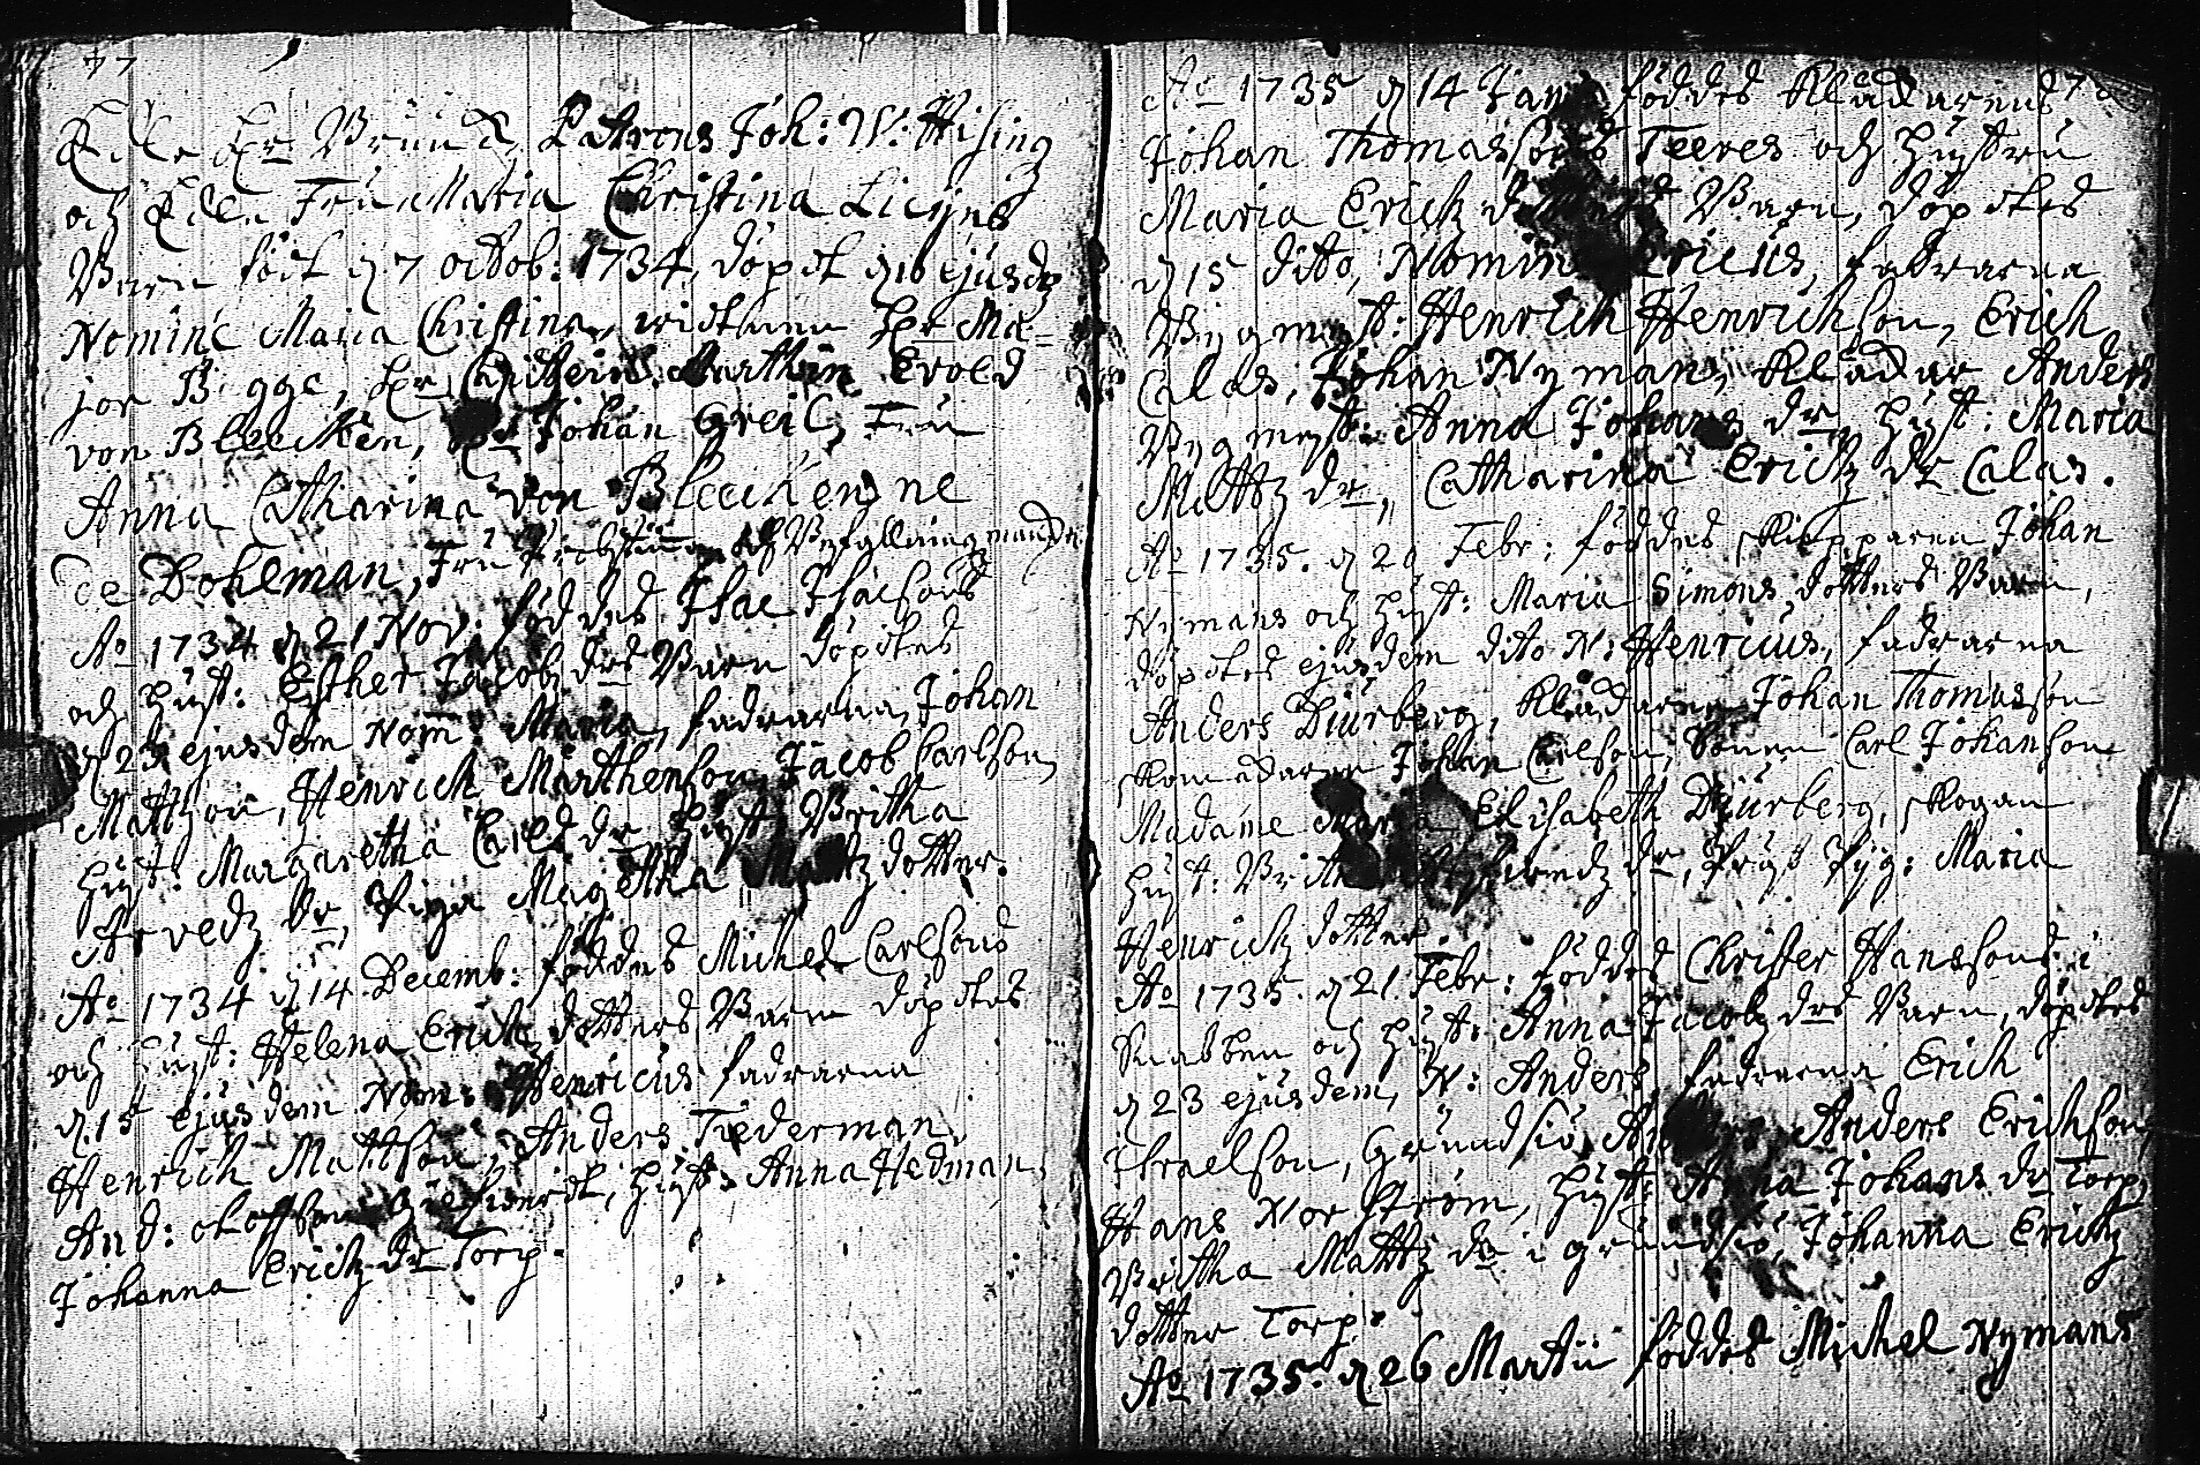 77
Edle Hr: Bruucks Patrons Joh: W: Hising
och Edle Fru Maria Christina Licijns
Barn födt d 7 octob: 1734, döpt d 16 ejusdz
Nomine Maria Christina, wittnen Hr Ma=
jor Bigge, Hr Marthin Evold
von Bleecken, Hr Johan Greil, Fru
Anna Catharina von Bleecken, ne
de Bohlman, Fru
Ao 1734 d 21 Nov: föddes Isac Isacsons
och Hust: Esther Jacobz drs Barn döptes
d 23 ejusdem Nom: Maria, fadrarna, Johan
Mattzon, Henrich Mårthenson, Jacob Carlson,
Hust: Margaretha Carlsdr, Hust: Britha
Arvedz dr, Piga Magetha Mattz dotter.
Ao 1734 d 14 Decemb: föddes Michel Carlsons
och Hust: Helena Erichz dotters Barn döptes
d. 15 ejusdem Nom: Henricus fadrarna
Henrich Mattson, Anders Tiederman,
And: Hust: Anna Hedman,
Johanna Erichz dr Torp.
78
Ao 1735 d 14 Jan föddes Klådarens
Johan Thomassons Teeres och Hustru
Maria Erichz Barn, döptes
d 15 dito, Nomin Ericus, fadrarna
Bygmest: Henrich Henrichson, Erich
Calas, Johan Nyman, Klådar Anders
Bygmest: Anna Johans dr, Hust: Maria
Mattz dr, Catharina Erichz dr Calas.
Ao 1735. d 20 Febr: föddes Skepparen Johan
Nymans och Hust: Maria Simons dotters Barn,
döptes ejusdem dito N: Henricus, fadrarna
Anders Diurberg, Klådaren Johan Thomasson
Skomakaren Johan Carlson, Sonen Carl Johanson
Madame Maria Elisabeth Diurberg, Skogan
Hust: Brit dr, Pryst Pyg: Maria
Henrichz dotter.
Ao 1735. d 21 Febr: föddes Christer Hanssons i
Knabben och Hust: Anna Jacobz drs Barn, döptes
d 23 ejusdem, N: Anders, fadrarna Erich
Israelson, Grundsiö, Anders Erichson,
Hans Norström, Hust: Anna Johans dr Torp,
Britha Mattz dr i Grundsiö, Johanna Erichz
dotter Torp.
Ao 1735. d 26 Martii föddes Michel Nymans